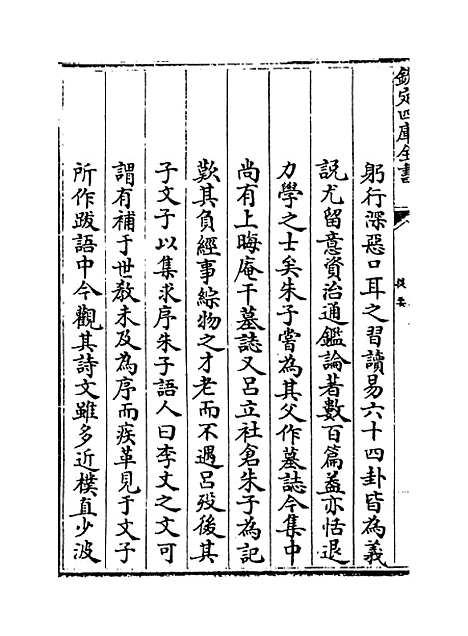 欽定四庫全書
提要
躬行深惡口耳之習讀易六十四卦皆為義
説尤留意資治通鑑論著數百篇蓋亦恬退
力學之士矣朱子嘗為其父作墓誌今集中
尚有上晦庵干墓誌又呂立社倉朱子為記
歎其負經事綜物之才老而不遇呂殁後其
子文子以集求序朱子語人曰李丈之文可
謂有補于世教未及為序而疾革見于文子
所作跋語中今觀其詩文雖多近樸直少波